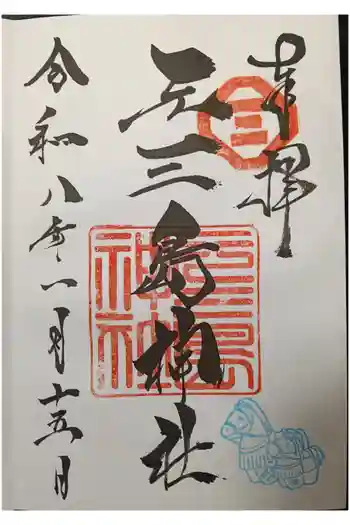 奉拝
三
元三島神社
元三島
神社
令和八年一月十五日